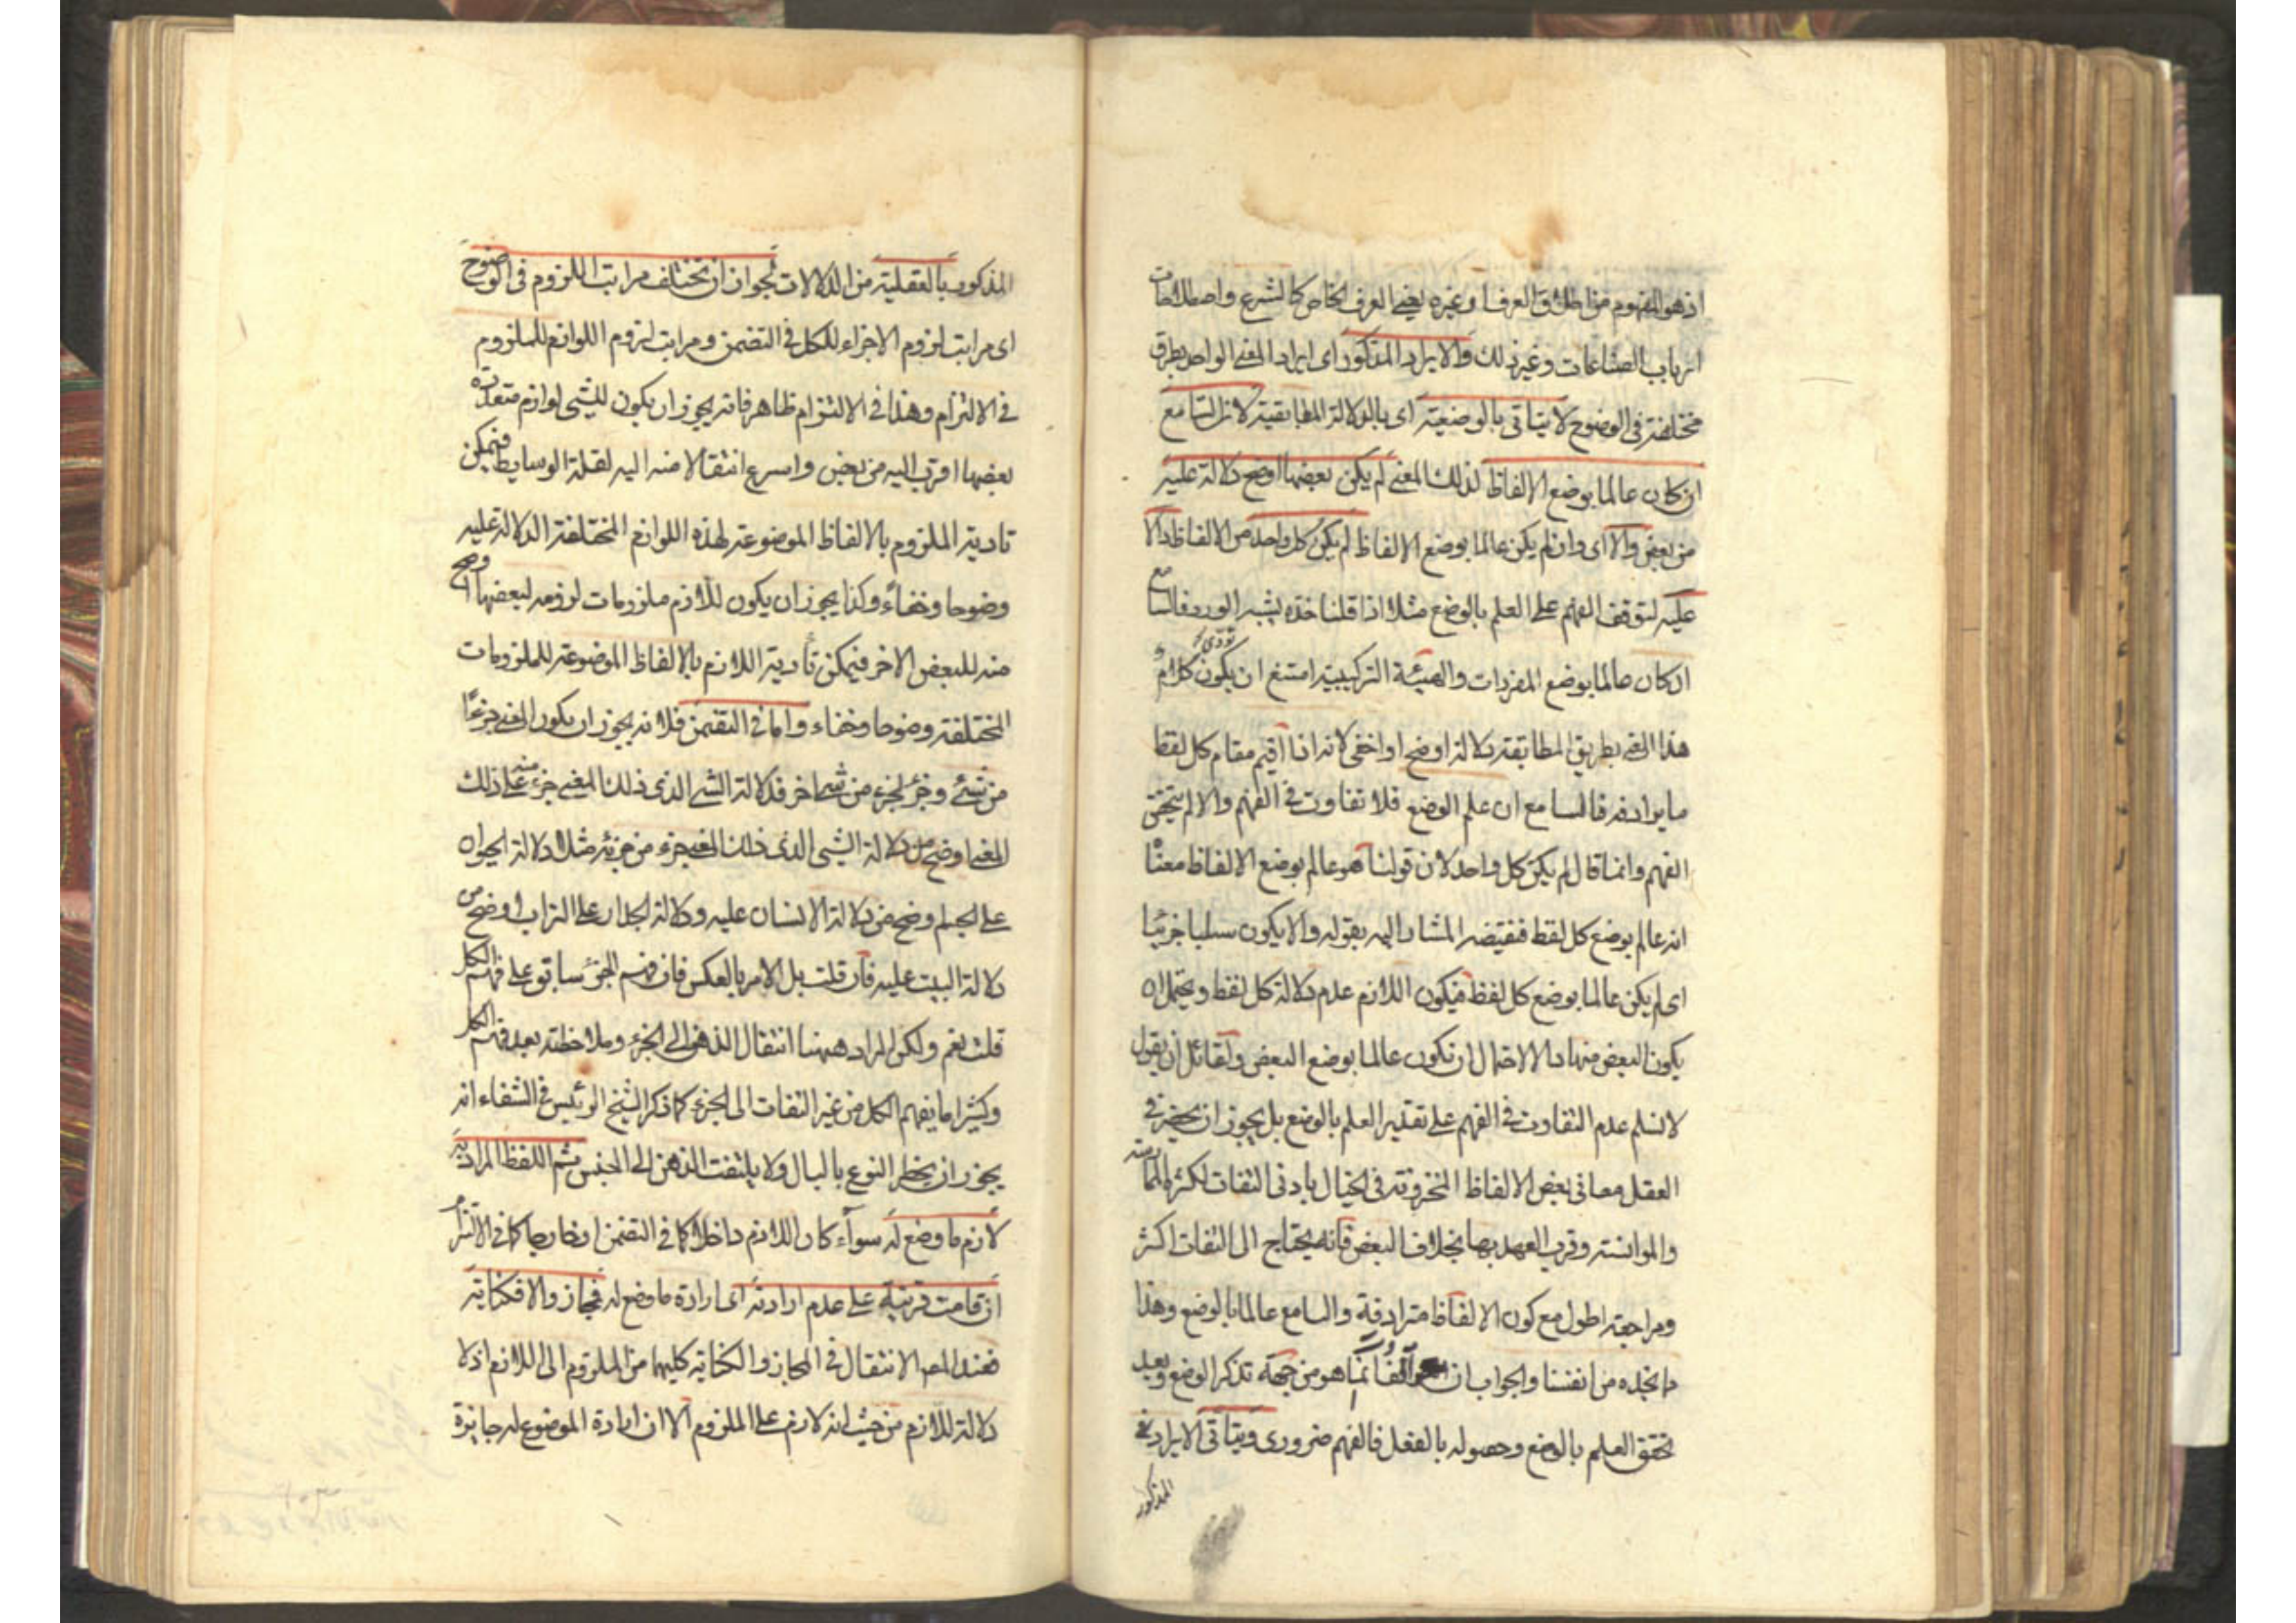 اذ هو المفهوم من اطلاق العرف او غيره يعني العرف الخاص كالشرع واصطلاحات
ارباب الصناعات وغير ذلك والايراد المذكور اى ايراد المعنى الواحد بطرق
مختلفة فى الوضوح لا يتاتى بالوضعية اى بالدلالة المطابقية لان السامع
ان كان عالما بوضع الالفاظ لذلك المعنى لم يكن بعضها اوضح دلالة عليه
من بعض والا اى وان لم يكن عالما بوضع الالفاظ لم يكن كل واحد من الالفاظ دالا
عليه لتوقف الفهم على العلم بالوضع مثلا اذا قلنا خده يشبه الورد فالسامع
ان كان عالما بوضع المفردات والهيئة التركيبية امتنع ان يكون كلام يؤدى
هذا المعنى بطريق المطابقة دلالة اوضح او اخفى لانه اذا اقيم مقام كل لفظ
ما يرادفه فالسامع ان علم الوضع فلا تفاوت فى الفهم والا لم يتحقق
الفهم وانما قال لم يكن كل واحد لان قولنا هو عالم بوضع الالفاظ معناه
انه عالم بوضع كل لفظ فنقيضه المشار اليه بقوله والا يكون سلبا جزئيا
اى لم يكن عالما بوضع كل لفظ فيكون اللازم عدم دلالة كل لفظ ويحتمل ان
يكون البعض منها دالا لاحتمال ان تكون عالما بوضع البعض ولقائل ان يقول
لا نسلم عدم التفاوت فى الفهم على تقدير العلم بالوضع بل يجوز ان يحضر فى
العقل معانى بعض الالفاظ المخزونة فى الخيال بادنى التفات لكثرة الممارسة
والموانسة وقرب العهد بها بخلاف البعض فانه يحتاج الى التفات اكثر
ومراجعة اطول مع كون الالفاظ مترادفة والسامع عالما بالوضع وهذا
ما نجده من انفسنا والجواب ان التوقف انما هو من جهة تذكر الوضع وبعد
تحقق العلم بالوضع وحصوله بالفعل فالفهم ضرورى ويتاتى الايراد
المذكور
المذكور بالعقلية من الدلالات لجواز ان تختلف مراتب اللزوم فى الوضوح
اى مراتب لزوم الاجزاء للكل فى التضمن ومراتب لزوم اللوازم للملزوم
فى الالتزام وهذا فى الالتزام ظاهر فانه يجوز ان يكون للشى لوازم متعددة
بعضها اقرب اليه من بعض واسرع انتقالا منه اليه لقلة الوسايط فيمكن
تادية الملزوم بالالفاظ الموضوعة لهذه اللوازم المختلفة الدلالة عليه
وضوحا وخفاءً وكذا يجوز ان يكون للازم ملزومات لزومه لبعضها اوضح
منه للبعض الاخر فيمكن تأدية اللازم بالالفاظ الموضوعة للملزومات
المختلفة وضوحا وخفاء واما فى التضمن فلانه يجوز ان يكون المعنى جزءًا
من شئ وجزء لجزء من شى اخر فدلالة الشى الذى ذلك المعنى جزء منه على ذلك
المعنى اوضح من دلالة الشى الذى ذلك المعنى جزء من جزئه مثلا دلالة الحيوان
على الجسم اوضح من دلالة الانسان عليه ودلالة الجدار على التراب اوضح من
دلالة البيت عليه فان قلت بل الامر بالعكس فان فهم الجزء سابق على فهم الكل
قلت نعم ولكن المراد ههنا انتقال الذهن الى الجزء وملاحظته بعد فهم الكل
وكثيرا ما يفهم الكل من غير التفات الى الجزء كما ذكر الشيخ الرئيس فى الشفاء انه
يجوز ان يخطر النوع بالبال ولا يلتفت الذهن الى الجنس ثم اللفظ المراد به
لازم ما وضع له سوآء كان اللازم داخلا كما فى التضمن او خارجا كما فى الالتزام
ان قامت قرينة على عدم ارادته اى ارادة ما وضع له فمجاز والا فكناية
فعند المص الانتقال فى المجاز والكناية كليهما من الملزوم الى اللازم اذ لا
دلالة للازم من حيث انه لازم على الملزوم الا ان ارادة الموضوع له جايزة